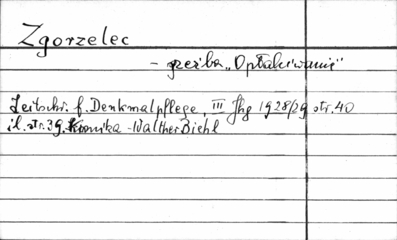 Zgorzelec
- rzeźba „Opłakiwanie"
Zeitschr. f. Denkmalpflege, III Jhg 1928/29 str. 40
il. str. 39. Kronika - Walther Biehl